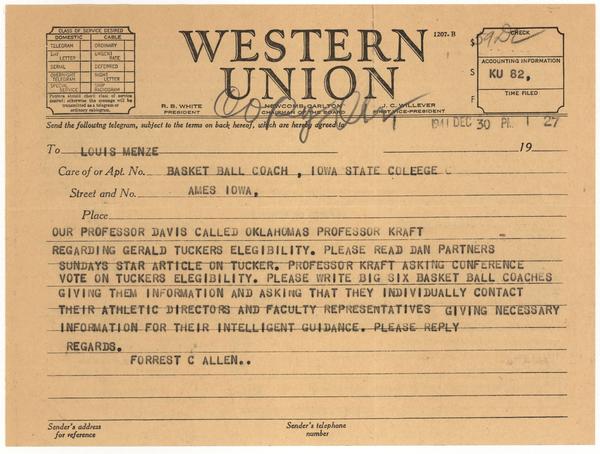 CLASS OF SERVICE DESIRED
DOMESTIC CABLE
TELEGRAM ORDINARY
DAY LETTER URGENT RATE
SERIAL DEFERRED
OVERNIGHT TELEGRAM NIGHT LETTER
SPECIAL SERVICE SHIP RADIOGRAM
Patrons should check class of service desired; otherwise the message will be transmitted as a telegram or ordinary cablegram.
WESTERN
UNION
1207-B
R. B. WHITE
PRESIDENT
NEWCOMB CARLTON
CHAIRMAN OF THE BOARD
J. C. WILLEVER
FIRST VICE-PRESIDENT
$
S
F
ACCOUNTING INFORMATION
KU 82,
TIME FILED
Copy
Send the following telegram, subject to the terms on back hereof, which are hereby agreed to
1941 DEC 30 PM 1 27
To LOUIS MENZE 19
Care of or Apt. No. BASKET BALL COACH , IOWA STATE COLEEGE C
Street and No. AMES IOWA,
Place
OUR PROFESSOR DAVIS CALLED OKLAHOMAS PROFESSOR KRAFT
REGARDING GERALD TUCKERS ELEGIBILITY. PLEASE READ DAN PARTNERS
SUNDAYS STAR ARTICLE ON TUCKER. PROFESSOR KRAFT ASKING CONFERENCE
VOTE ON TUCKERS ELEGIBILITY. PLEASE WRITE BIG SIX BASKET BALL COACHES
GIVING THEM INFORMATION AND ASKING THAT THEY INDIVIDUALLY CONTACT
THEIR ATHLETIC DIRECTORS AND FACULTY REPRESENTATIVES GIVING NECESSARY
INFORMATION FOR THEIR INTELLIGENT GUIDANCE. PLEASE REPLY
REGARDS.
FORREST C ALLEN..
Sender's address
for reference
Sender's telephone
number